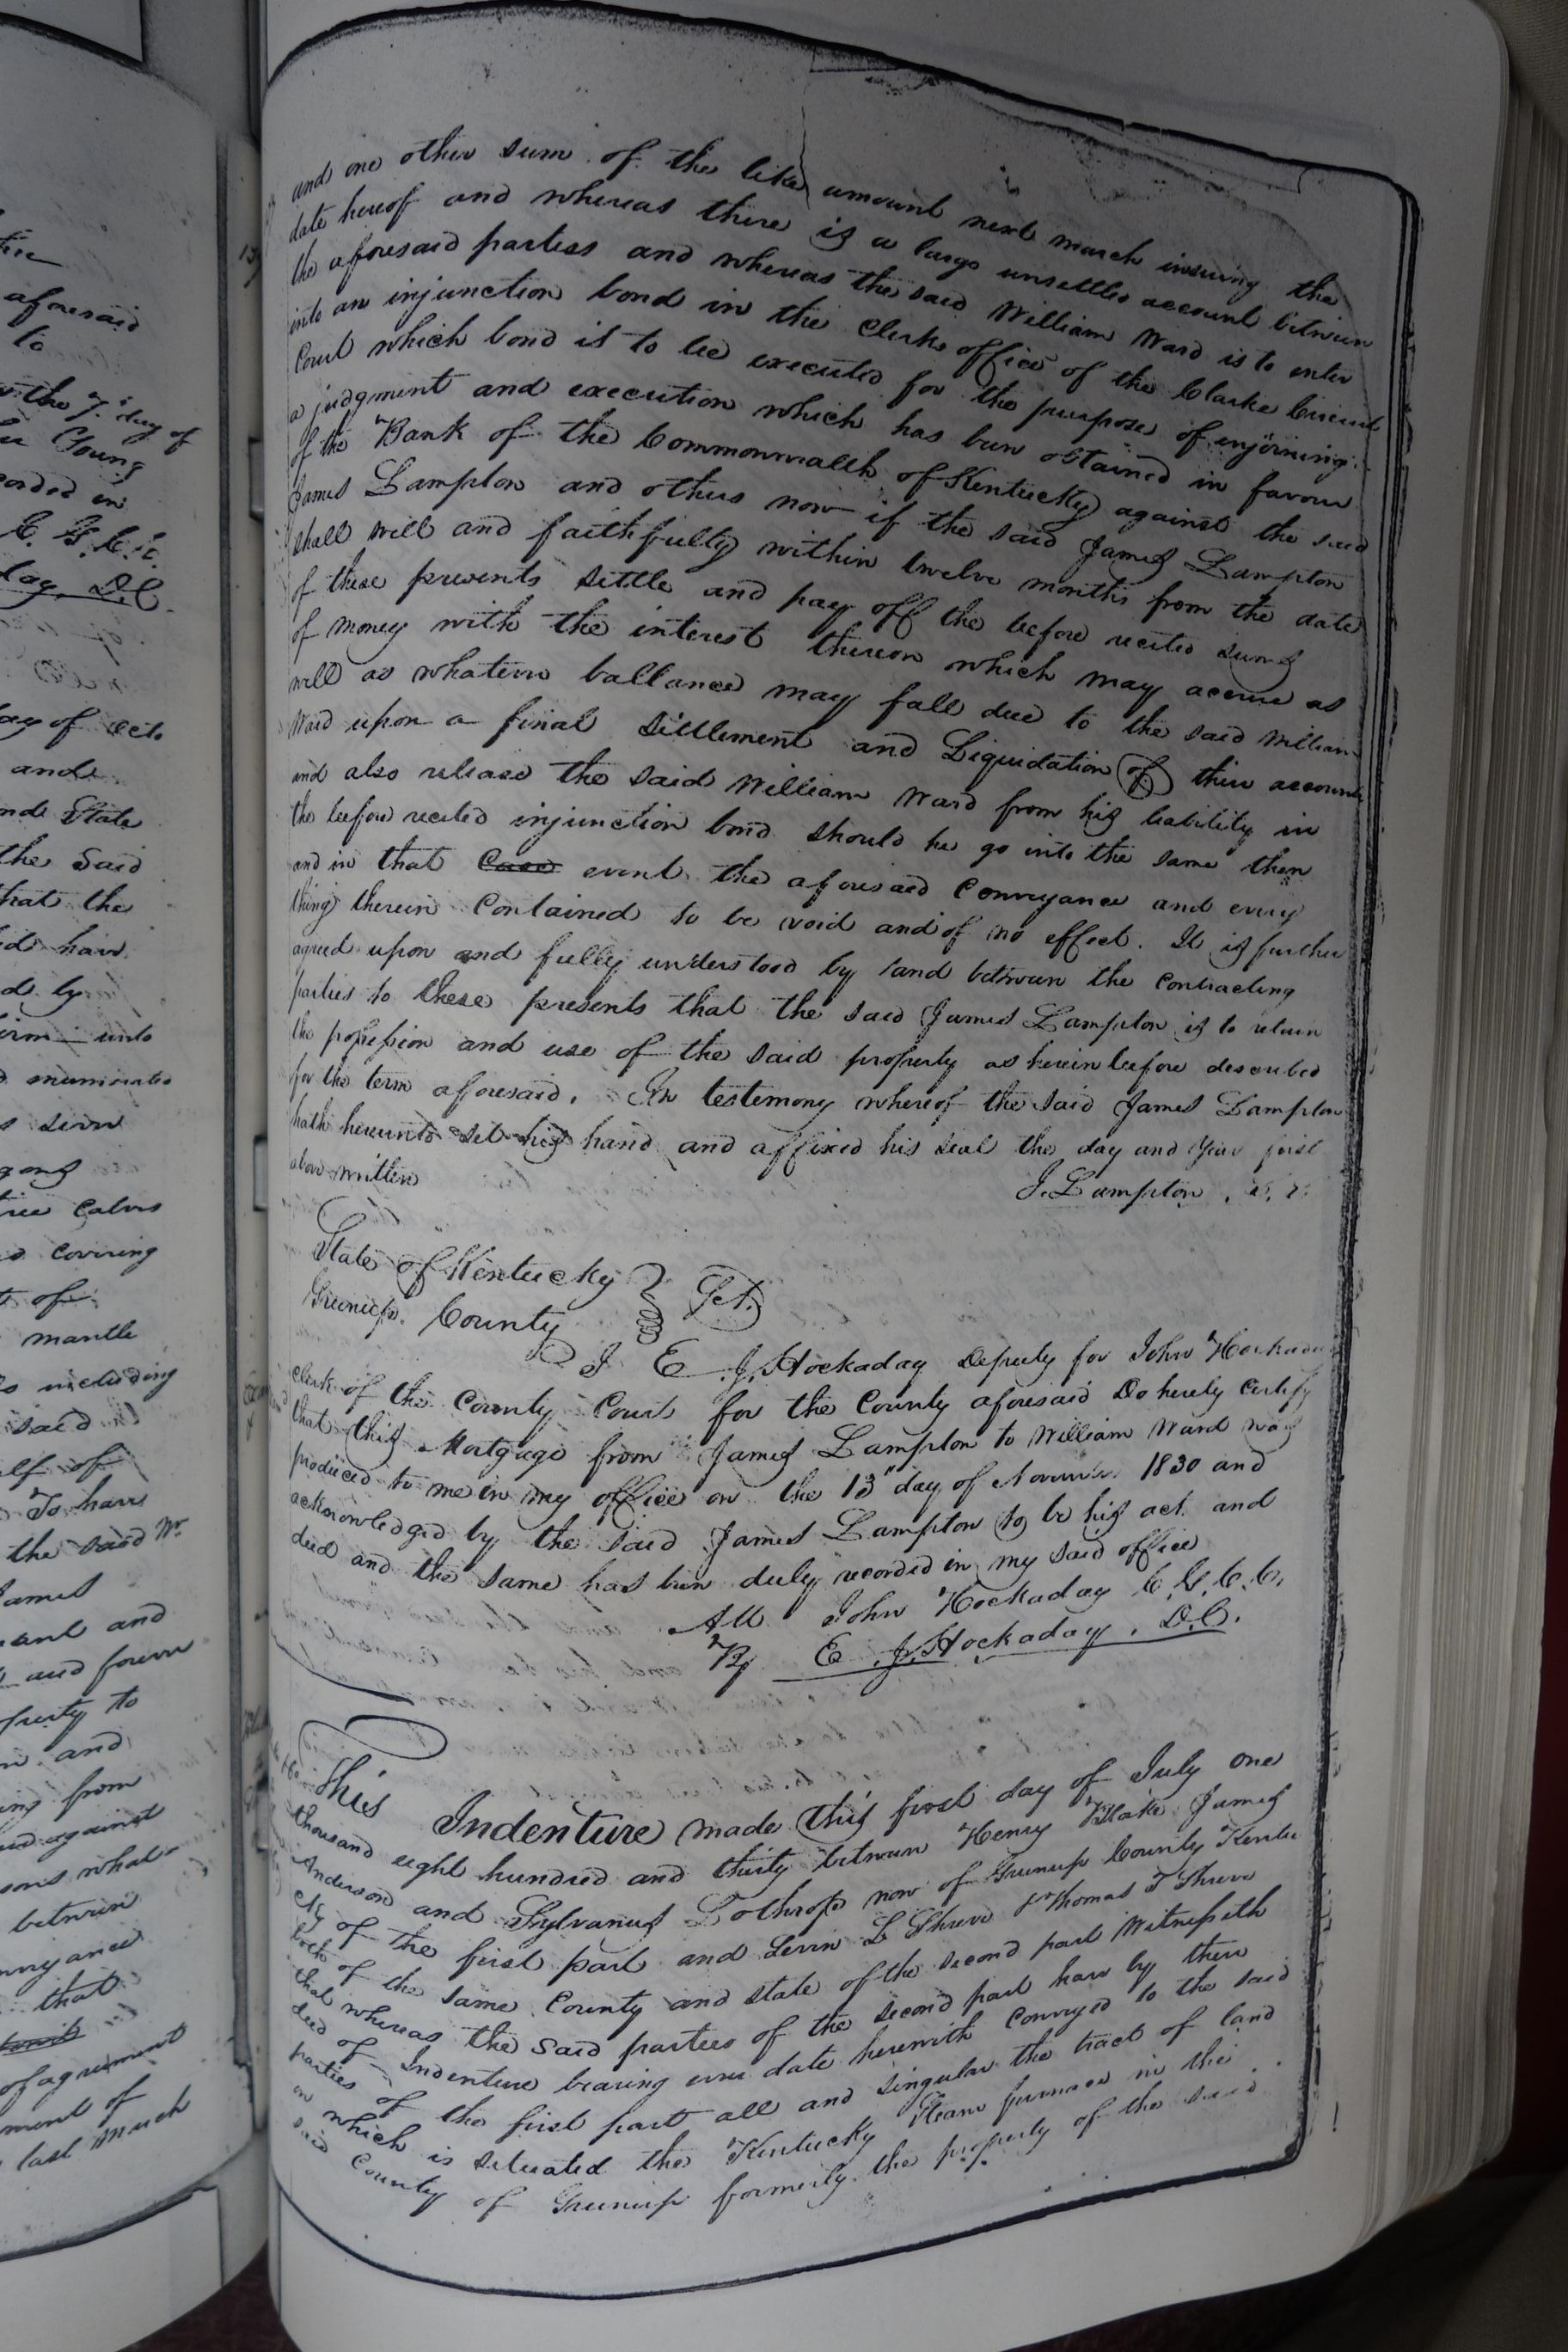 tire
aforesaid
to
with the 7th day of
Young
corded in
C. G. C. C.
day, D.C.
day of Octo
and
and State
the Said
that the
d have
d by
irm unto
d enumerated
s seven
gong
tree Calves
d covering
t of
mantle
s including
said
lf of
To have
the said Wm
James
ant and
and forever
perty to
n and
ing from
ed against
sons what
between
nveyance
that
of agreement
ment of
last much
and one other sum of the like amount next march insuing the
date hereof and whereas there is a large unsettled account between
the aforesaid parties and whereas the said William Ward is to enter
into an injunction bond in the Clerks office of the Clarke Circuit
Court which bond is to be executed for the purpose of enjoining
a judgment and execution which has been obtained in favour
of the Bank of the Commonwealth of Kentucky against the said
James Lampton and others now if the said James Lampton
shall will and faithfully within twelve months from the date
of these presents settle and pay off the before recited sums
of money with the interest thereon which may accrue as
well as whatever ballance may fall due to the said William
Ward upon a final settlement and Liquidation of their accounts
and also release the said William Ward from his liability in
the before recited injunction bond should he go into the same then
and in that Case event the aforesaid Conveyance and every
thing therein Contained to be void and of no effect. It is further
agreed upon and fully understood by and between the Contracting
parties to these presents that the said James Lampton is to retain
the possession and use of the said property as herein before described
for the term aforesaid. In testimony whereof the said James Lampton
hath hereunto set his hand and affixed his seal the day and Year first
above written
J. Lampton
State of Kentucky
Greenup County Sct.
I E. J. Hockaday Deputy for John Hockaday
Clerk of the County Court for the County aforesaid Do hereby Certify
that this Mortgage from James Lampton to William Ward was
produced to me in my office on the 13" day of November 1830 and
acknowledged by the said James Lampton to be his act and
deed and the same has been duly recorded in my said office
Att John Hockaday C. G. C. C.
By E. J. Hockaday, D.C.
This Indenture made this first day of July one
thousand eight hundred and thirty between Henry Blake James
Anderson and Sylvanus Lothrop now of Greenup County Kentu
cky of the first part and Levin L Shreve & Thomas T Shreve
both of the same County and state of the second part Witnesseth
that whereas the said parties of the second part have by their
deed of Indenture bearing even date herewith Conveyed to the said
parties of the first part all and singular the tract of land
on which is situated the Kentucky Steam furnace in the
said County of Greenup formerly the property of the said